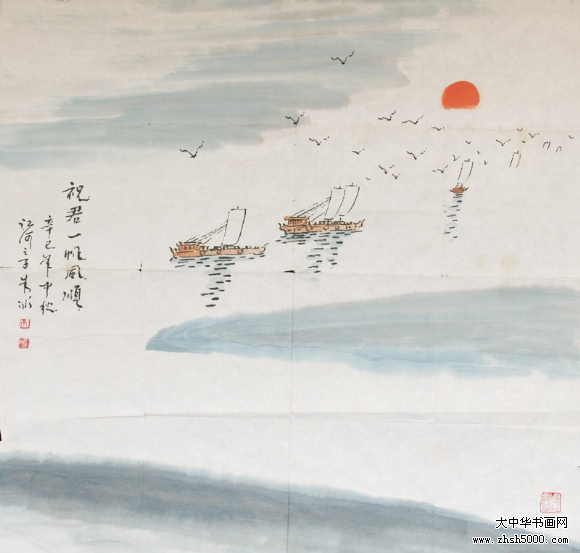 祝君一帆風順
辛巳年中秋
大中华书画网
www.zhsh5000.com